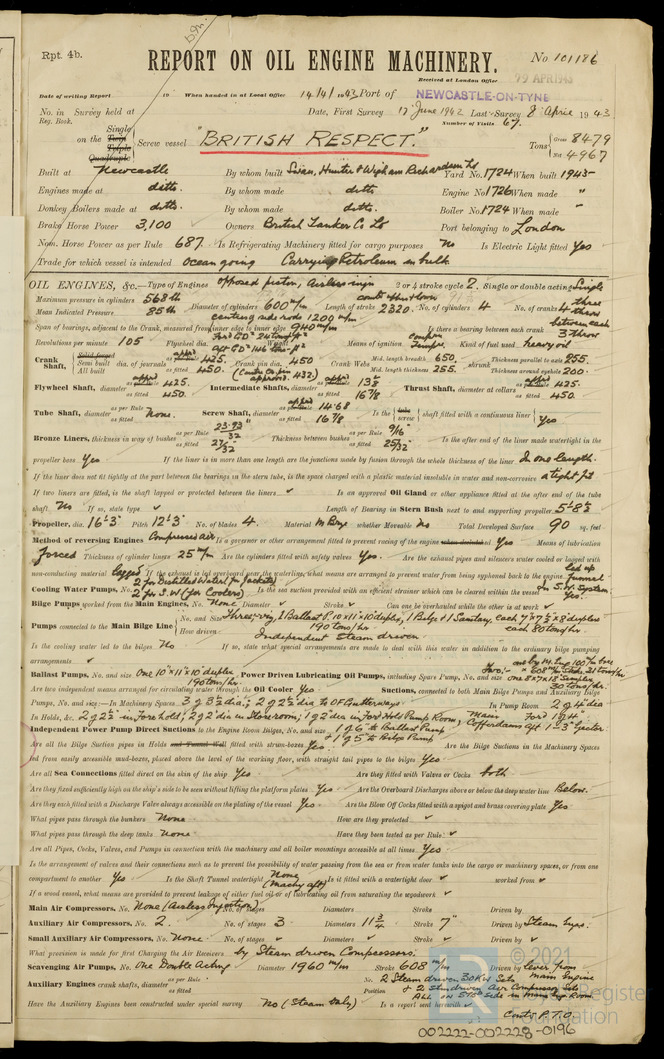 b.m.
Rpt. 4b.
REPORT ON OIL ENGINE MACHINERY.
No. 101186
Received at London Office 19 APR 1943
Date of writing Report 19 When handed in at Local Office 14/4/1943 Port of NEWCASTLE-ON-TYNE
No. in Survey held at Date, First Survey 17 June 1942 Last Survey 8 April 1943
Reg. Book. Number of Visits 67.
Single
on the Twin Screw vessel "BRITISH RESPECT." Tons Gross 8479
Triple
Quadruple Net 4967
Built at Newcastle By whom built Swan, Hunter & Wigham Richardson Ld Yard No. 1724 When built 1943
Engines made at ditto. By whom made ditto. Engine No. 1726 When made "
Donkey Boilers made at ditto. By whom made ditto. Boiler No. 1724 When made "
Brake Horse Power 3,100 Owners British Tanker Co Ld Port belonging to London
Nom. Horse Power as per Rule 687 Is Refrigerating Machinery fitted for cargo purposes No Is Electric Light fitted Yes
Trade for which vessel is intended Ocean going Carrying Petroleum in bulk
OIL ENGINES, &c.—Type of Engines opposed piston, Airless injn 2 or 4 stroke cycle 2. Single or double acting Single
Maximum pressure in cylinders 568 lb Diameter of cylinders 600 m/m Length of stroke 2320 No. of cylinders 4 No. of cranks 4 three throw
Mean Indicated Pressure 85 lb
Span of bearings, adjacent to the Crank, measured from inner edge to inner edge 940 m/m Is there a bearing between each crank between each 3 throw
Revolutions per minute 105 Flywheel dia. Weight Means of ignition Compn Kind of fuel used heavy oil
Crank Shaft, Solid forged Semi built All built dia. of journals 425. as fitted 450. Crank pin dia. 450 Crank Webs Mid. length breadth 650. Mid. length thickness 255. shrunk Thickness parallel to axis 255. Thickness around eyehole 200.
Flywheel Shaft, diameter 425. as fitted 450. Intermediate Shafts, diameter 13 5/8 as fitted 16 7/8 Thrust Shaft, diameter at collars 425. as fitted 450.
Tube Shaft, diameter as per Rule as fitted None. Screw Shaft, diameter 14.68 as fitted 16 7/8 Is the tube screw shaft fitted with a continuous liner Yes
Bronze Liners, thickness in way of bushes as per Rule 23.93/32 as fitted 27/32 Thickness between bushes as per Rule 9/16 as fitted 25/32 Is the after end of the liner made watertight in the
propeller boss Yes If the liner is in more than one length are the junctions made by fusion through the whole thickness of the liner In one length.
If the liner does not fit tightly at the part between the bearings in the stern tube, is the space charged with a plastic material insoluble in water and non-corrosive a tight fit
If two liners are fitted, is the shaft lapped or protected between the liners ✓ Is an approved Oil Gland or other appliance fitted at the after end of the tube
shaft No If so, state type ✓ Length of Bearing in Stern Bush next to and supporting propeller 5'-8½"
Propeller, dia. 16'-3" Pitch 12'-3" No. of blades 4. Material M Brze whether Moveable No Total Developed Surface 90 sq. feet
Method of reversing Engines Compressed air Is a governor or other arrangement fitted to prevent racing of the engine when declutched Yes Means of lubrication
forced Thickness of cylinder liners 25 m/m Are the cylinders fitted with safety valves Yes. Are the exhaust pipes and silencers water cooled or lagged with
non-conducting material lagged If the exhaust is led overboard near the waterline, what means are arranged to prevent water from being syphoned back to the engine led up funnel
Cooling Water Pumps, No. 2 for Distilled Water (for Jackets) 2 for S.W (for Coolers) Is the sea suction provided with an efficient strainer which can be cleared within the vessel In S.W. System Yes.
Bilge Pumps worked from the Main Engines, No. None Diameter ✓ Stroke ✓ Can one be overhauled while the other is at work ✓
Pumps connected to the Main Bilge Line No. and Size Three, viz, 1 Ballast P. 10"x11"x10" duplex, 1 Bilge & 1 Sanitary, each 7"x7½"x8" duplex
190 tons/hr. each 80 tons/hr.
How driven Independent Steam driven
Is the cooling water led to the bilges No. If so, state what special arrangements are made to deal with this water in addition to the ordinary bilge pumping
arrangements ✓
Ballast Pumps, No. and size One 10"x11"x10" duplex 190 tons/hr. Power Driven Lubricating Oil Pumps, including Spare Pump, No. and size
Are two independent means arranged for circulating water through the Oil Cooler Yes Suctions, connected to both Main Bilge Pumps and Auxiliary Bilge
Pumps, No. and size:—In Machinery Spaces 3 @ 3½" dia.; 2 @ 2½" dia. In Pump Room 2 @ 4" dia
In Holds, &c. 2 @ 2½" in Fore hold; 2 @ 2" dia in Store room; 1 @ 2" dia in Ford Hold Pump Room,
Independent Power Pump Direct Suctions to the Engine Room Bilges, No. and size 1 @ 6" to Ballast Pump
+ 1 @ 5" to Bilge Pump
Are all the Bilge Suction pipes in Holds and Tunnel Well fitted with strum-boxes Yes Are the Bilge Suctions in the Machinery Spaces
led from easily accessible mud-boxes, placed above the level of the working floor, with straight tail pipes to the bilges Yes
Are all Sea Connections fitted direct on the skin of the ship Yes Are they fitted with Valves or Cocks both
Are they fixed sufficiently high on the ship's side to be seen without lifting the platform plates Yes Are the Overboard Discharges above or below the deep water line Below.
Are they each fitted with a Discharge Valve always accessible on the plating of the vessel Yes Are the Blow Off Cocks fitted with a spigot and brass covering plate Yes
What pipes pass through the bunkers None How are they protected ✓
What pipes pass through the deep tanks None Have they been tested as per Rule ✓
Are all Pipes, Cocks, Valves, and Pumps in connection with the machinery and all boiler mountings accessible at all times Yes.
Is the arrangement of valves and their connections such as to prevent the possibility of water passing from the sea or from water tanks into the cargo or machinery spaces, or from one
compartment to another Yes Is the Shaft Tunnel watertight None (Machy aft) Is it fitted with a watertight door ✓ worked from ✓
If a wood vessel, what means are provided to prevent leakage of either fuel oil or lubricating oil from saturating the woodwork ✓
Main Air Compressors, No. None (Airless Injection) No. of stages Diameters Stroke Driven by
Auxiliary Air Compressors, No. 2. No. of stages 3 Diameters 11¾ Stroke 7" Driven by Steam Engs.
Small Auxiliary Air Compressors, No. None. No. of stages ✓ Diameters ✓ Stroke ✓ Driven by ✓
What provision is made for first Charging the Air Receivers by Steam driven Compressors.
Scavenging Air Pumps, No. One Double Acting Diameter 1960 m/m Stroke 608 m/m Driven by lever from Main Engine
Auxiliary Engines crank shafts, diameter as per Rule as fitted No. 2 Steam driven 30 KW Sets
Position + 2 Stm driven Air Compressor Sets
ALL on STBD Side in Main Eng Room
Have the Auxiliary Engines been constructed under special survey No (Steam only) Is a report sent herewith ✓
Contd P.T.O.
© 2021
Lloyd's Register
Foundation
002222-002228-0196